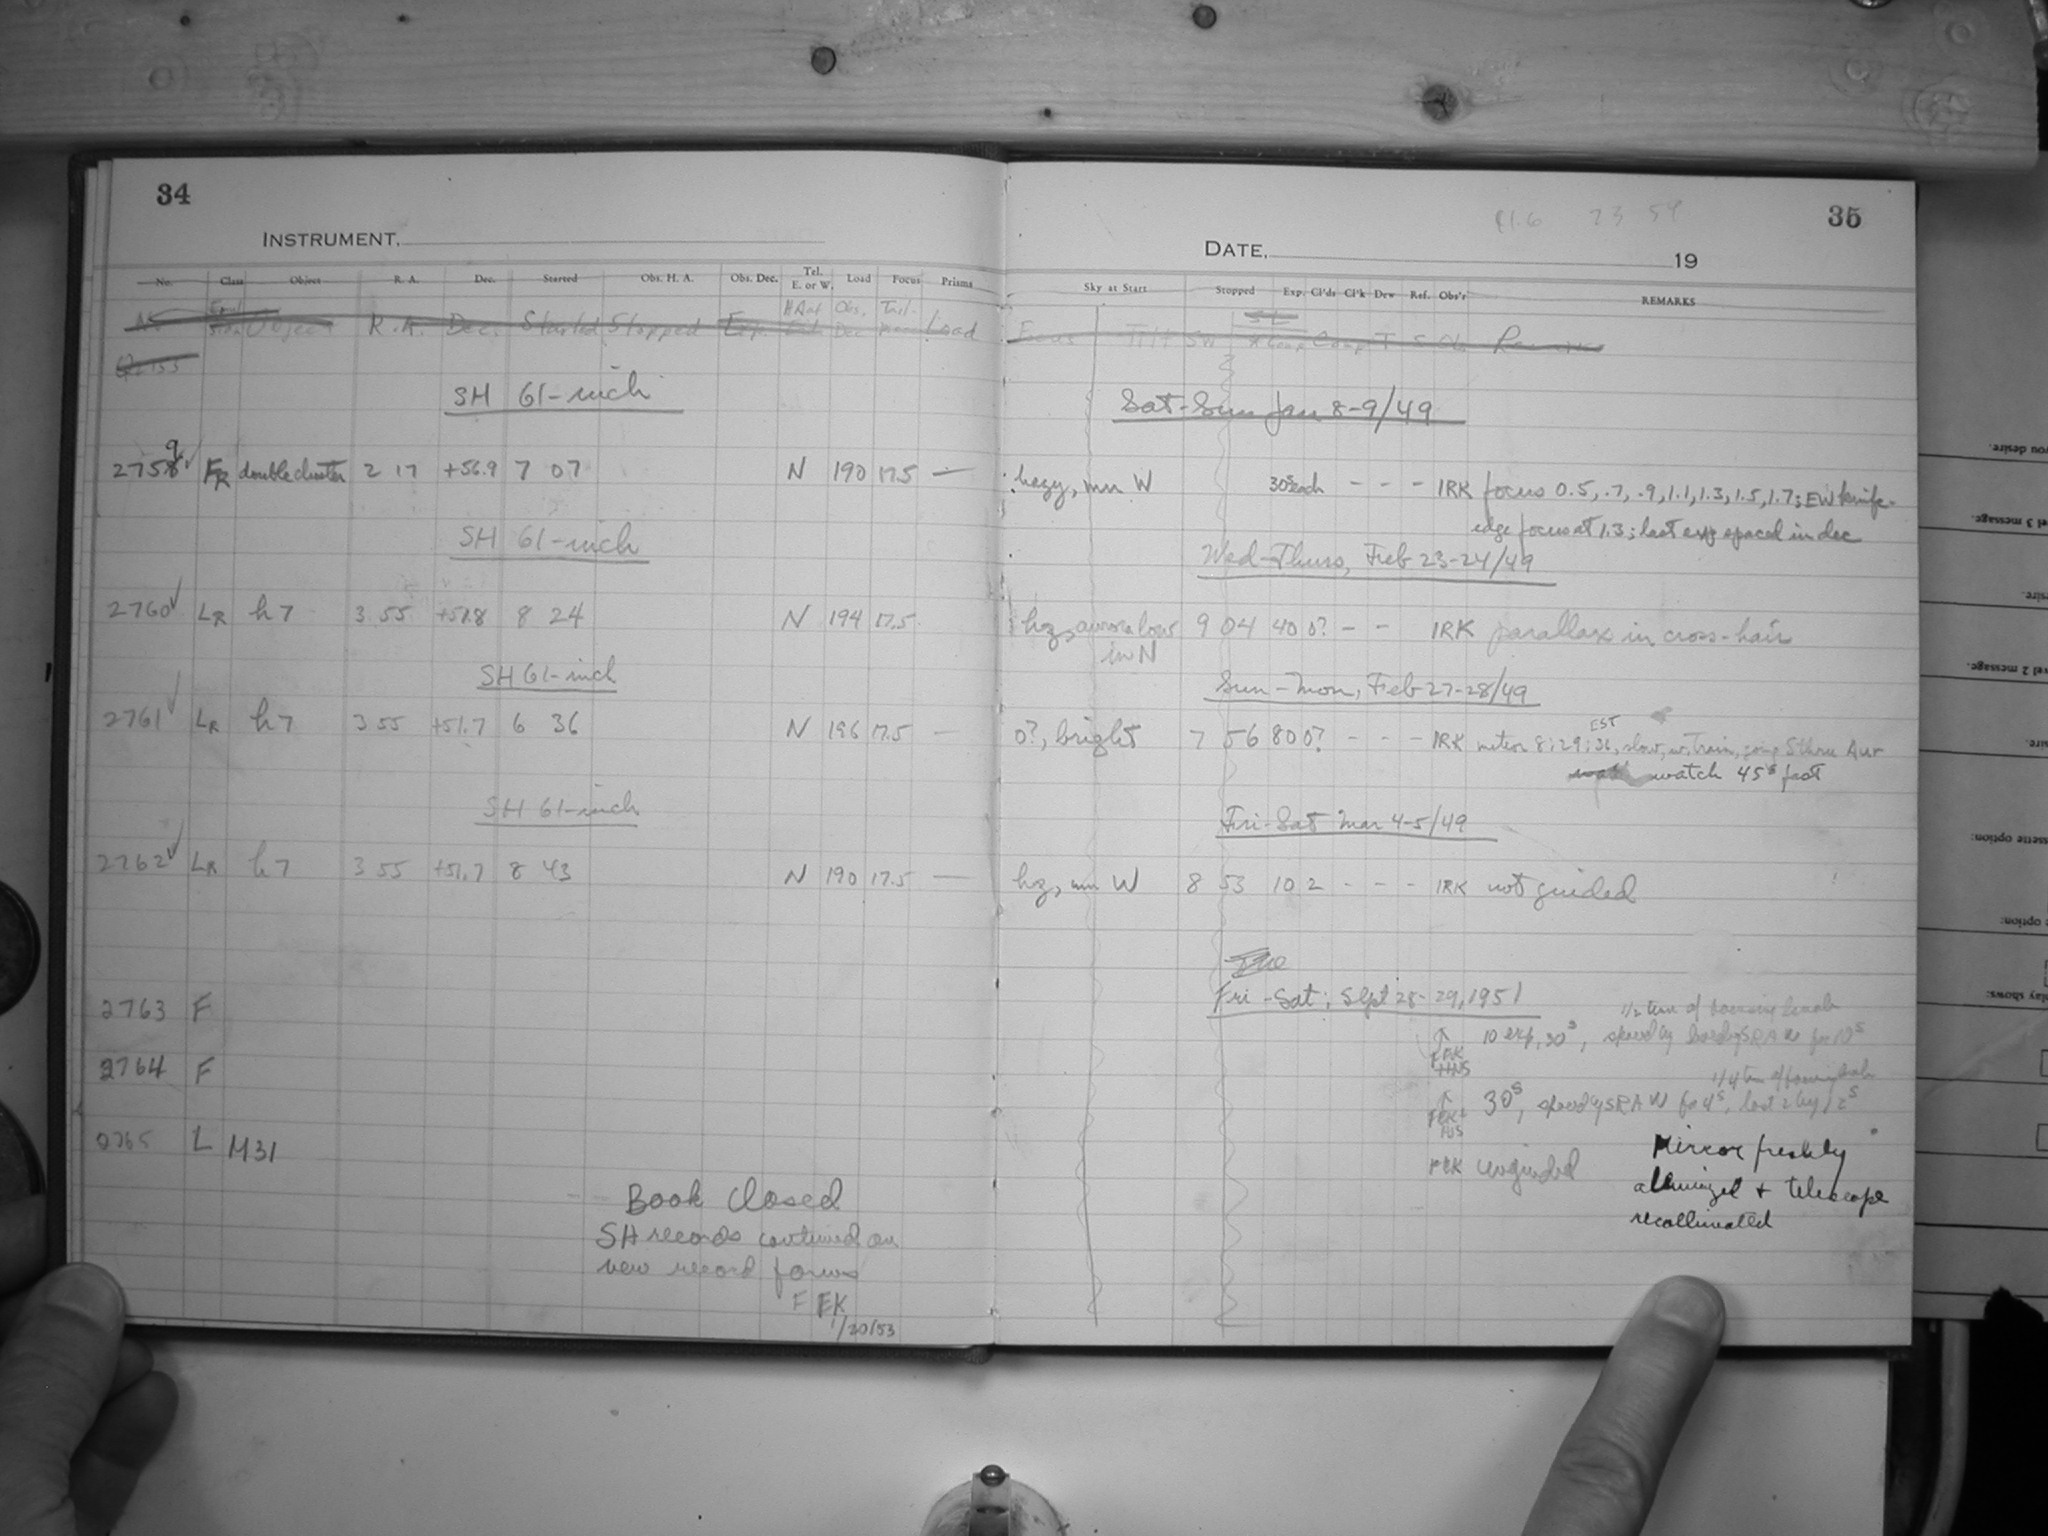 34
INSTRUMENT.
No. Class Object R. A. Dec. Started Obs. H. A. Obs. Dec. Tel. E. or W. Load Focus Prisms
Object R.A. Dec. Started Stopped Exp. Obs. Dec Load
SH 61-inch
2759 FR double cluster 2 17 +56.9 7 07 N 190 17.5 —
SH 61-inch
2760 ✓ LR h 7 3 55 +51.8 8 24 N 194 17.5
SH 61-inch
2761 LR h 7 3 55 +51.7 6 36 N 196 17.5 —
SH 61-inch
2762 ✓ LR h 7 3 55 +51.7 8 43 N 190 17.5 —
2763 F
2764 F
2765 L M31
Book Closed
SH records continued on
new record forms
FEK
1/20/53
23 59
35
DATE, 19
Sky at Start Stopped Exp. Cl'ds Cl'k Dew Ref. Obs'r REMARKS
Focus Tilt
Sat-Sun Jan 8-9/49
hazy, mn W 30s each - - - IRK focus 0.5, .7, .9, 1.1, 1.3, 1.5, 1.7; EW knife-
edge focus at 1.3; last exp spaced in dec
Wed-Thurs, Feb 23-24/49
hz, aurora low 9 04 40 0? - - IRK parallax in cross-hair
in N
Sun-Mon, Feb 27-28/49
EST
0?, bright 7 56 80 0? - - - IRK meteor 8:29:36, slow, w. train, going S thru Aur
watch 45s fast
Fri-Sat Mar 4-5/49
hz, mn W 8 53 10 2 - - - IRK not guided
Fri-Sat; Sept 28-29, 1951
1/2 turn of focusing handle
10 exp, 30s, spaced by RA W for 10s
1/4 turn of focusing
30s, spaced by RA W for 4s, last 2 by 12s
FEK unguided
Mirror freshly
aluminized + telescope
recollimated